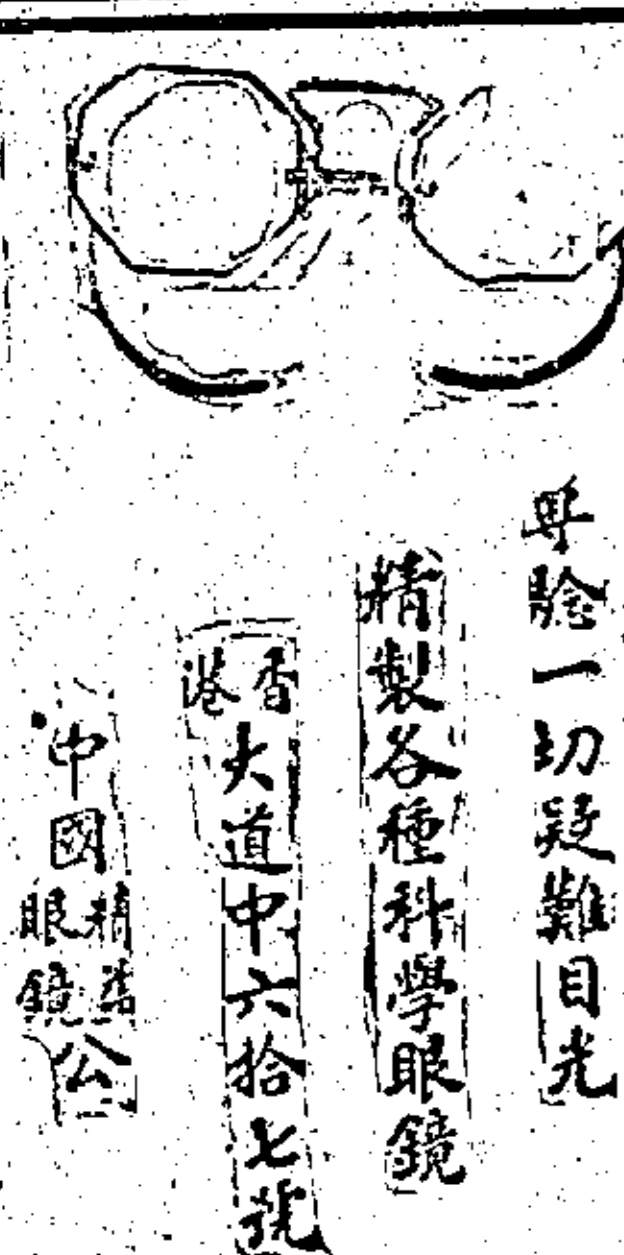 專騐一切疑難目光
精製各種科學眼鏡
香港大道中六拾七號
中國精益眼鏡公